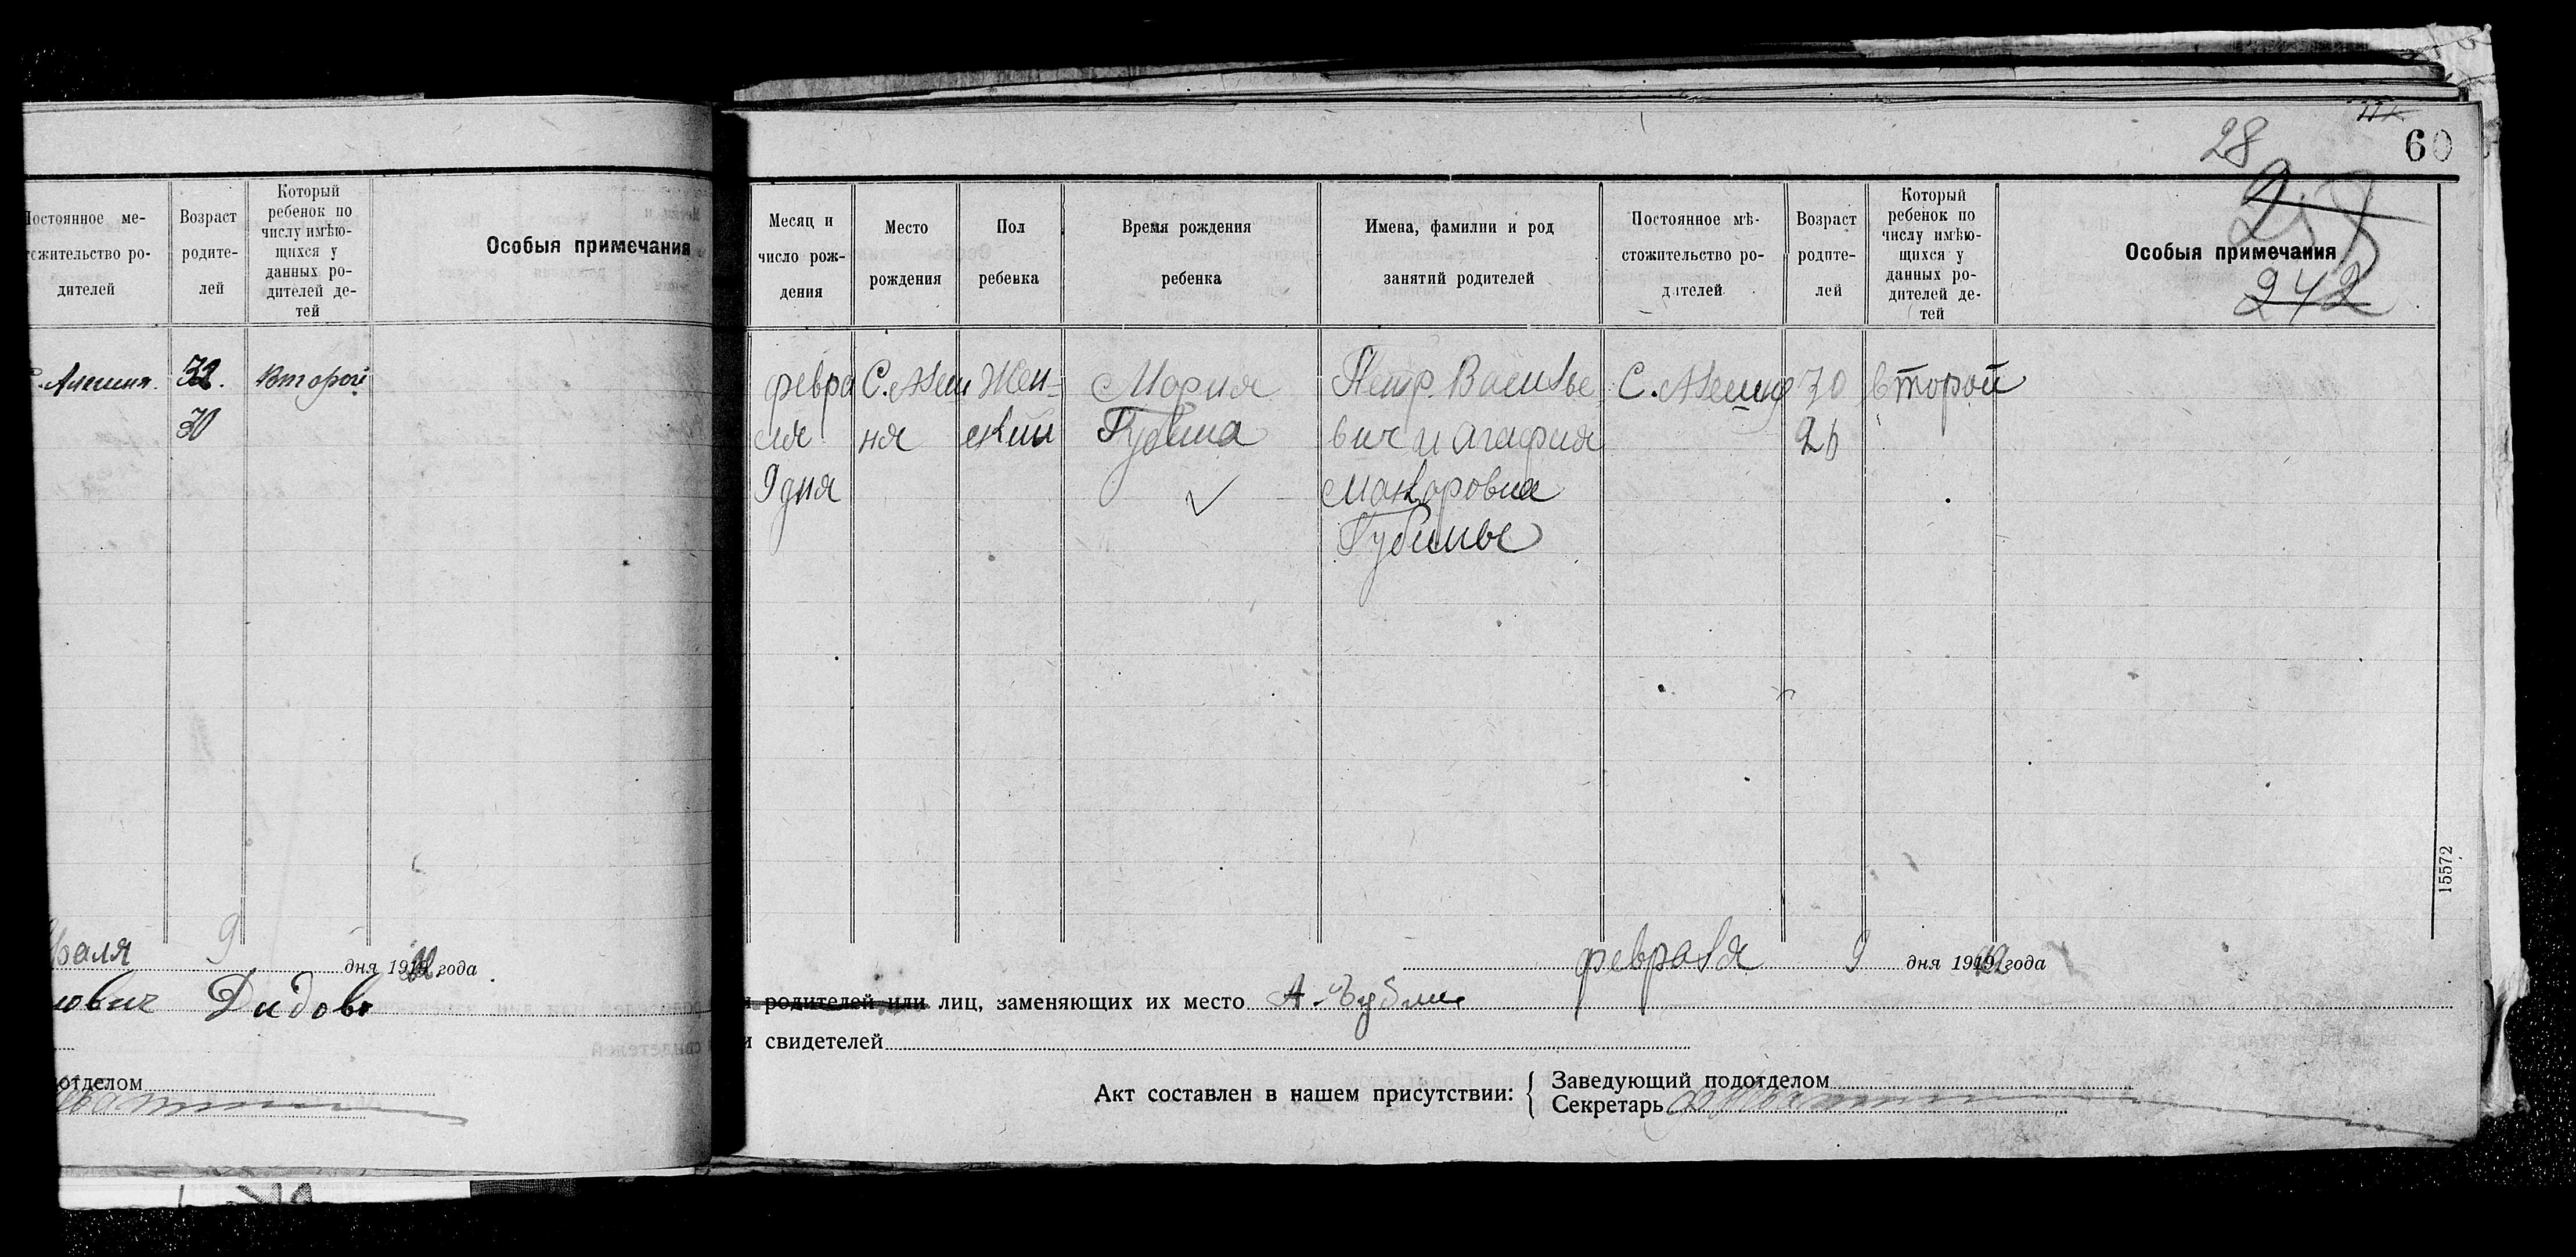 Постоянное ме-
стожительство ро-
дителей
Возраст
родите-
лей
Который
ребенок по
числу имѣю-
щихся у
данных ро-
дителей де-
тей
Особыя примечания
С. Алешня.
32.
30
Второй
враля 9 дня 1922 года
ович Дидов
отделом
60
28
242
Месяц и
число рож-
дения
Место
рождения
Пол
ребенка
Время рождения
ребенка
Имена, фамилии и род
занятий родителей
Постоянное мѣ-
стожительство ро-
дителей
Возраст
родите-
лей
Который
ребенок по
числу имѣю-
щихся у
данных ро-
дителей де-
тей
Особыя примечания
февра
ля
9 дня
С. Алеш
ня
Жен-
ский
Мария
Губина
Петр Василье
вич и Агафия
Макаровна
Губины
С. Алешня
30
26
второй
февраля 9 дня 1922 года
и родителей или лиц, заменяющих их место А. Губин
и свидетелей
Акт составлен в нашем присутствии: { Заведующий подотделом
Секретарь
15572